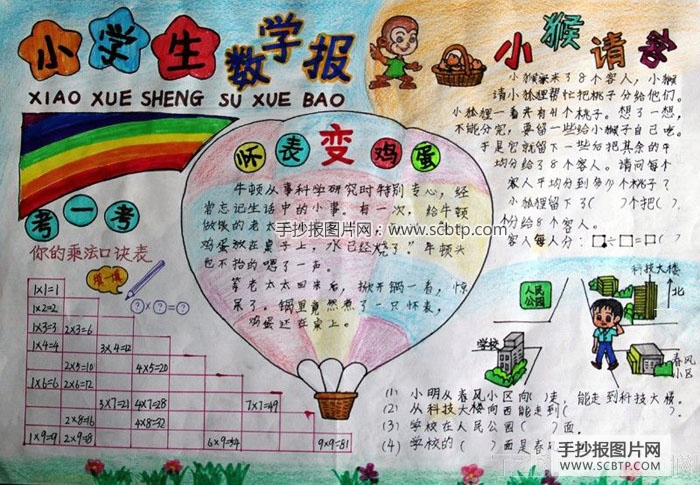 小学生数学报
XIAO XUE SHENG SU XUE BAO
小猴请客
小猴家来了8个客人,小猴
请小狐狸帮忙把桃子分给他们。
小狐狸一看共有41个桃子。想了一想,
不能分完,要留一些给小猴子自己吃。
于是它就留下一些后把其余的平
均分给了8个客人。请问每个
客人平均分到多少个桃子?
小狐狸留下了( )个把( )
个分给8个客人。
客人每人分:□÷□=□( )
怀表变鸡蛋
牛顿从事科学研究时特别专心,经
常忘记生活中的小事。有一次,给牛顿
做饭的老太
鸡蛋放在桌子上,水已经烧了”牛顿头
也不抬的嗯了一声。
等老太太回来后,掀开锅一看,惊
呆了。锅里竟然煮了一只怀表,
鸡蛋还在桌上。
手抄报图片网
www.scbtp.com
考一考
你的乘法口诀表
填填
?×?=?
1×1=1
1×2=2
1×3=3 2×3=6
1×4=4 3×4=12
2×5=10 4×5=20
1×6=6 2×6=12
3×7=21 4×7=28 7×7=49
2×8=16 4×8=32
1×9=9 2×9=18 6×9=54 9×9=81
科技大楼
北
人民公园
学校
春风小区
(1) 小明从春风小区向( )走,能走到科技大楼。
(2) 从科技大楼向西能走到( )
(3) 学校在人民公园( )面。
(4) 学校的( )面是春
手抄报图片网
WWW.SCBTP.COM